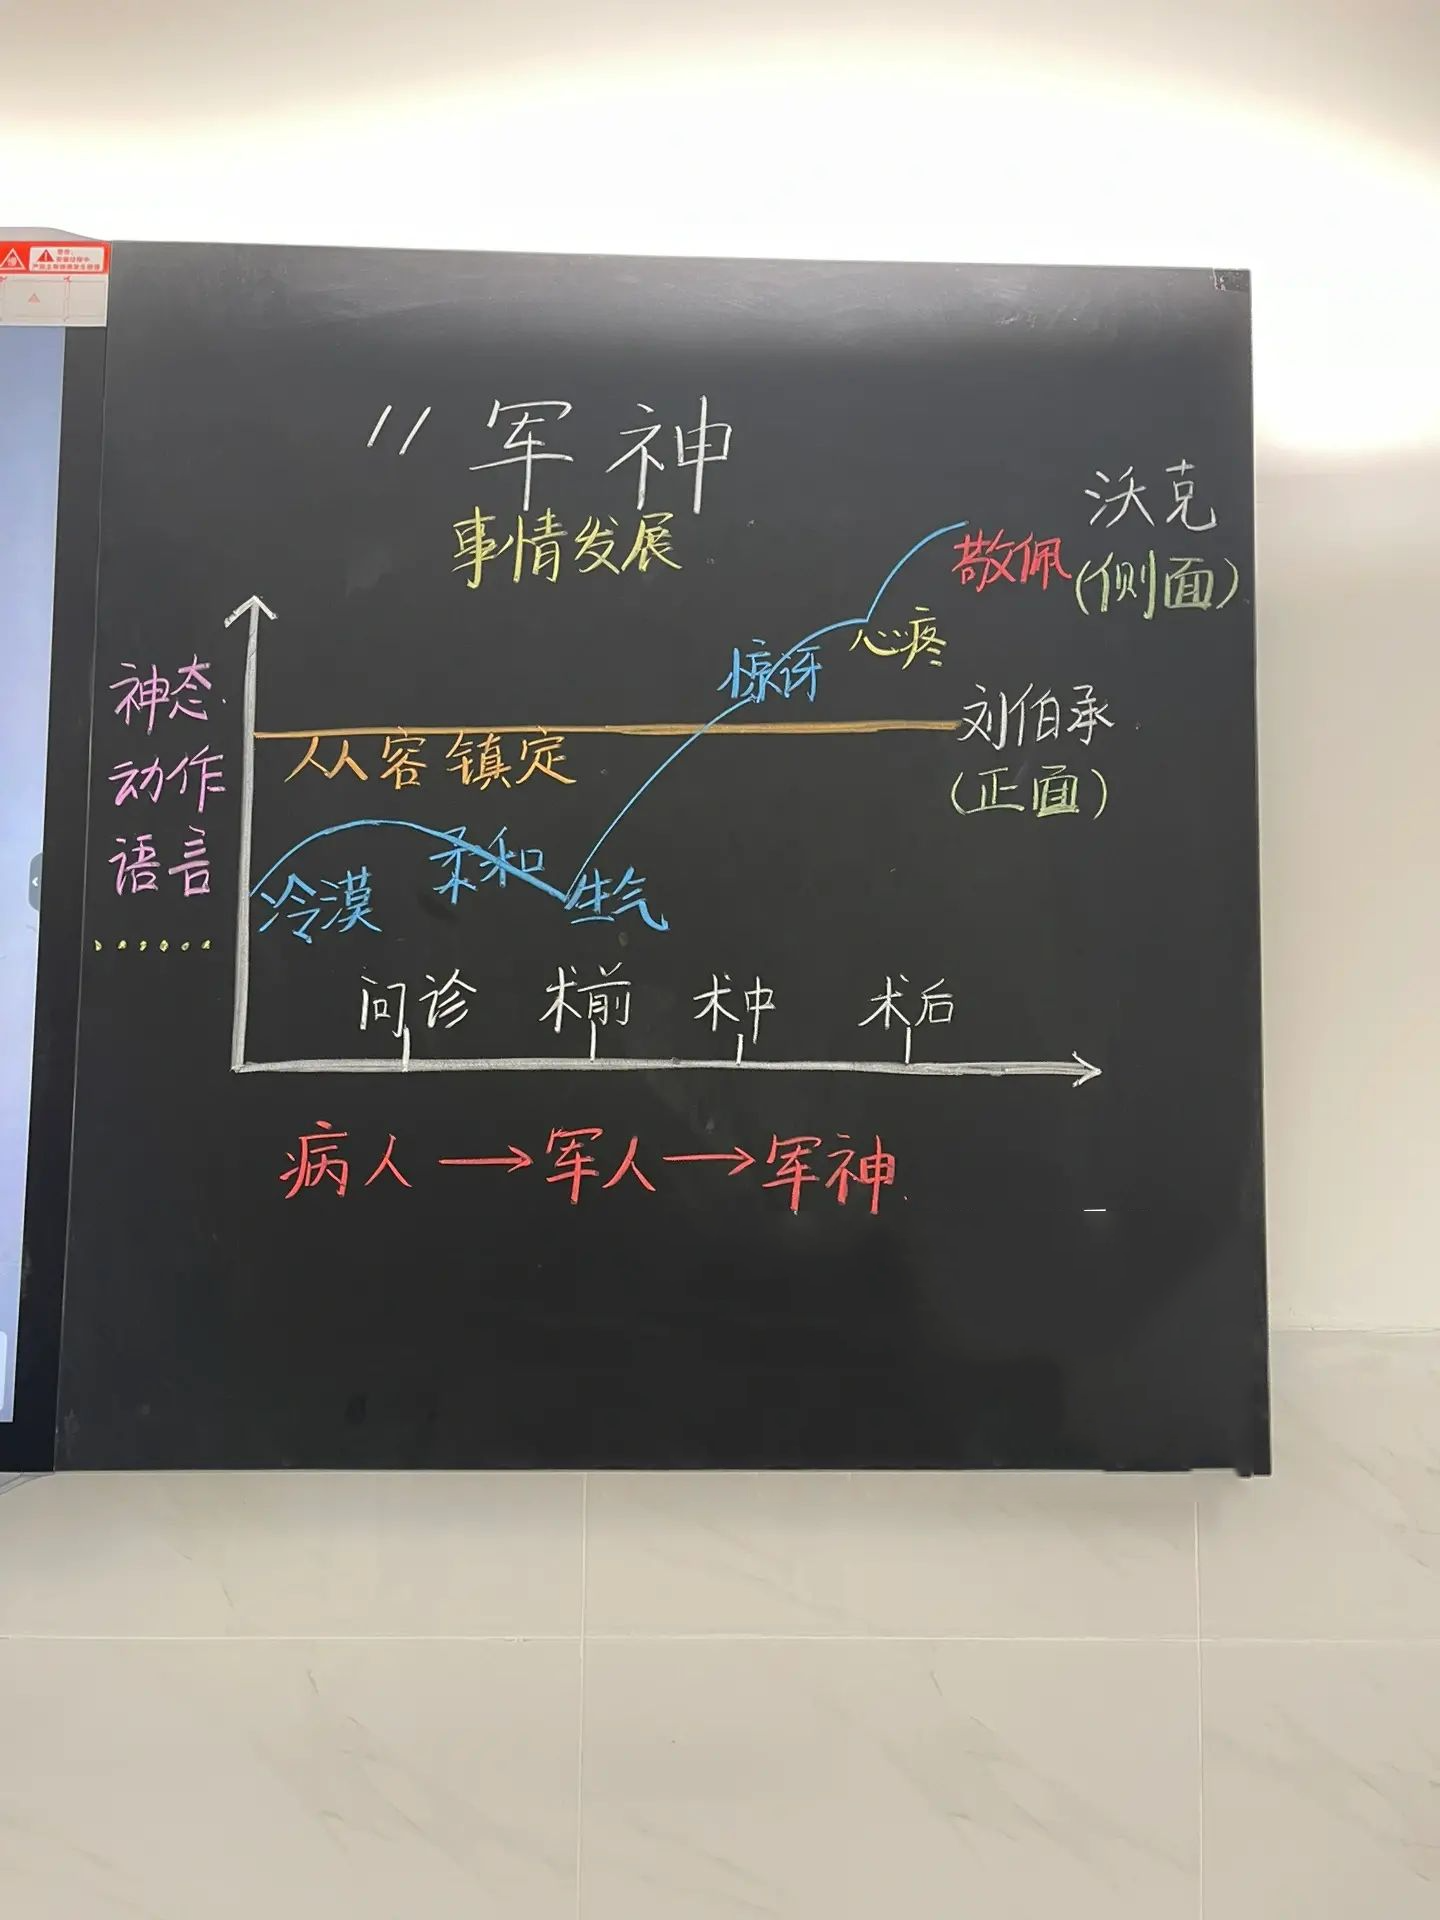 11 军神
事情发展
沃克
(侧面)
敬佩
心疼
惊讶
刘伯承
(正面)
从容镇定
神态
动作
语言
......
冷漠
柔和
生气
问诊 术前 术中 术后
病人→军人→军神